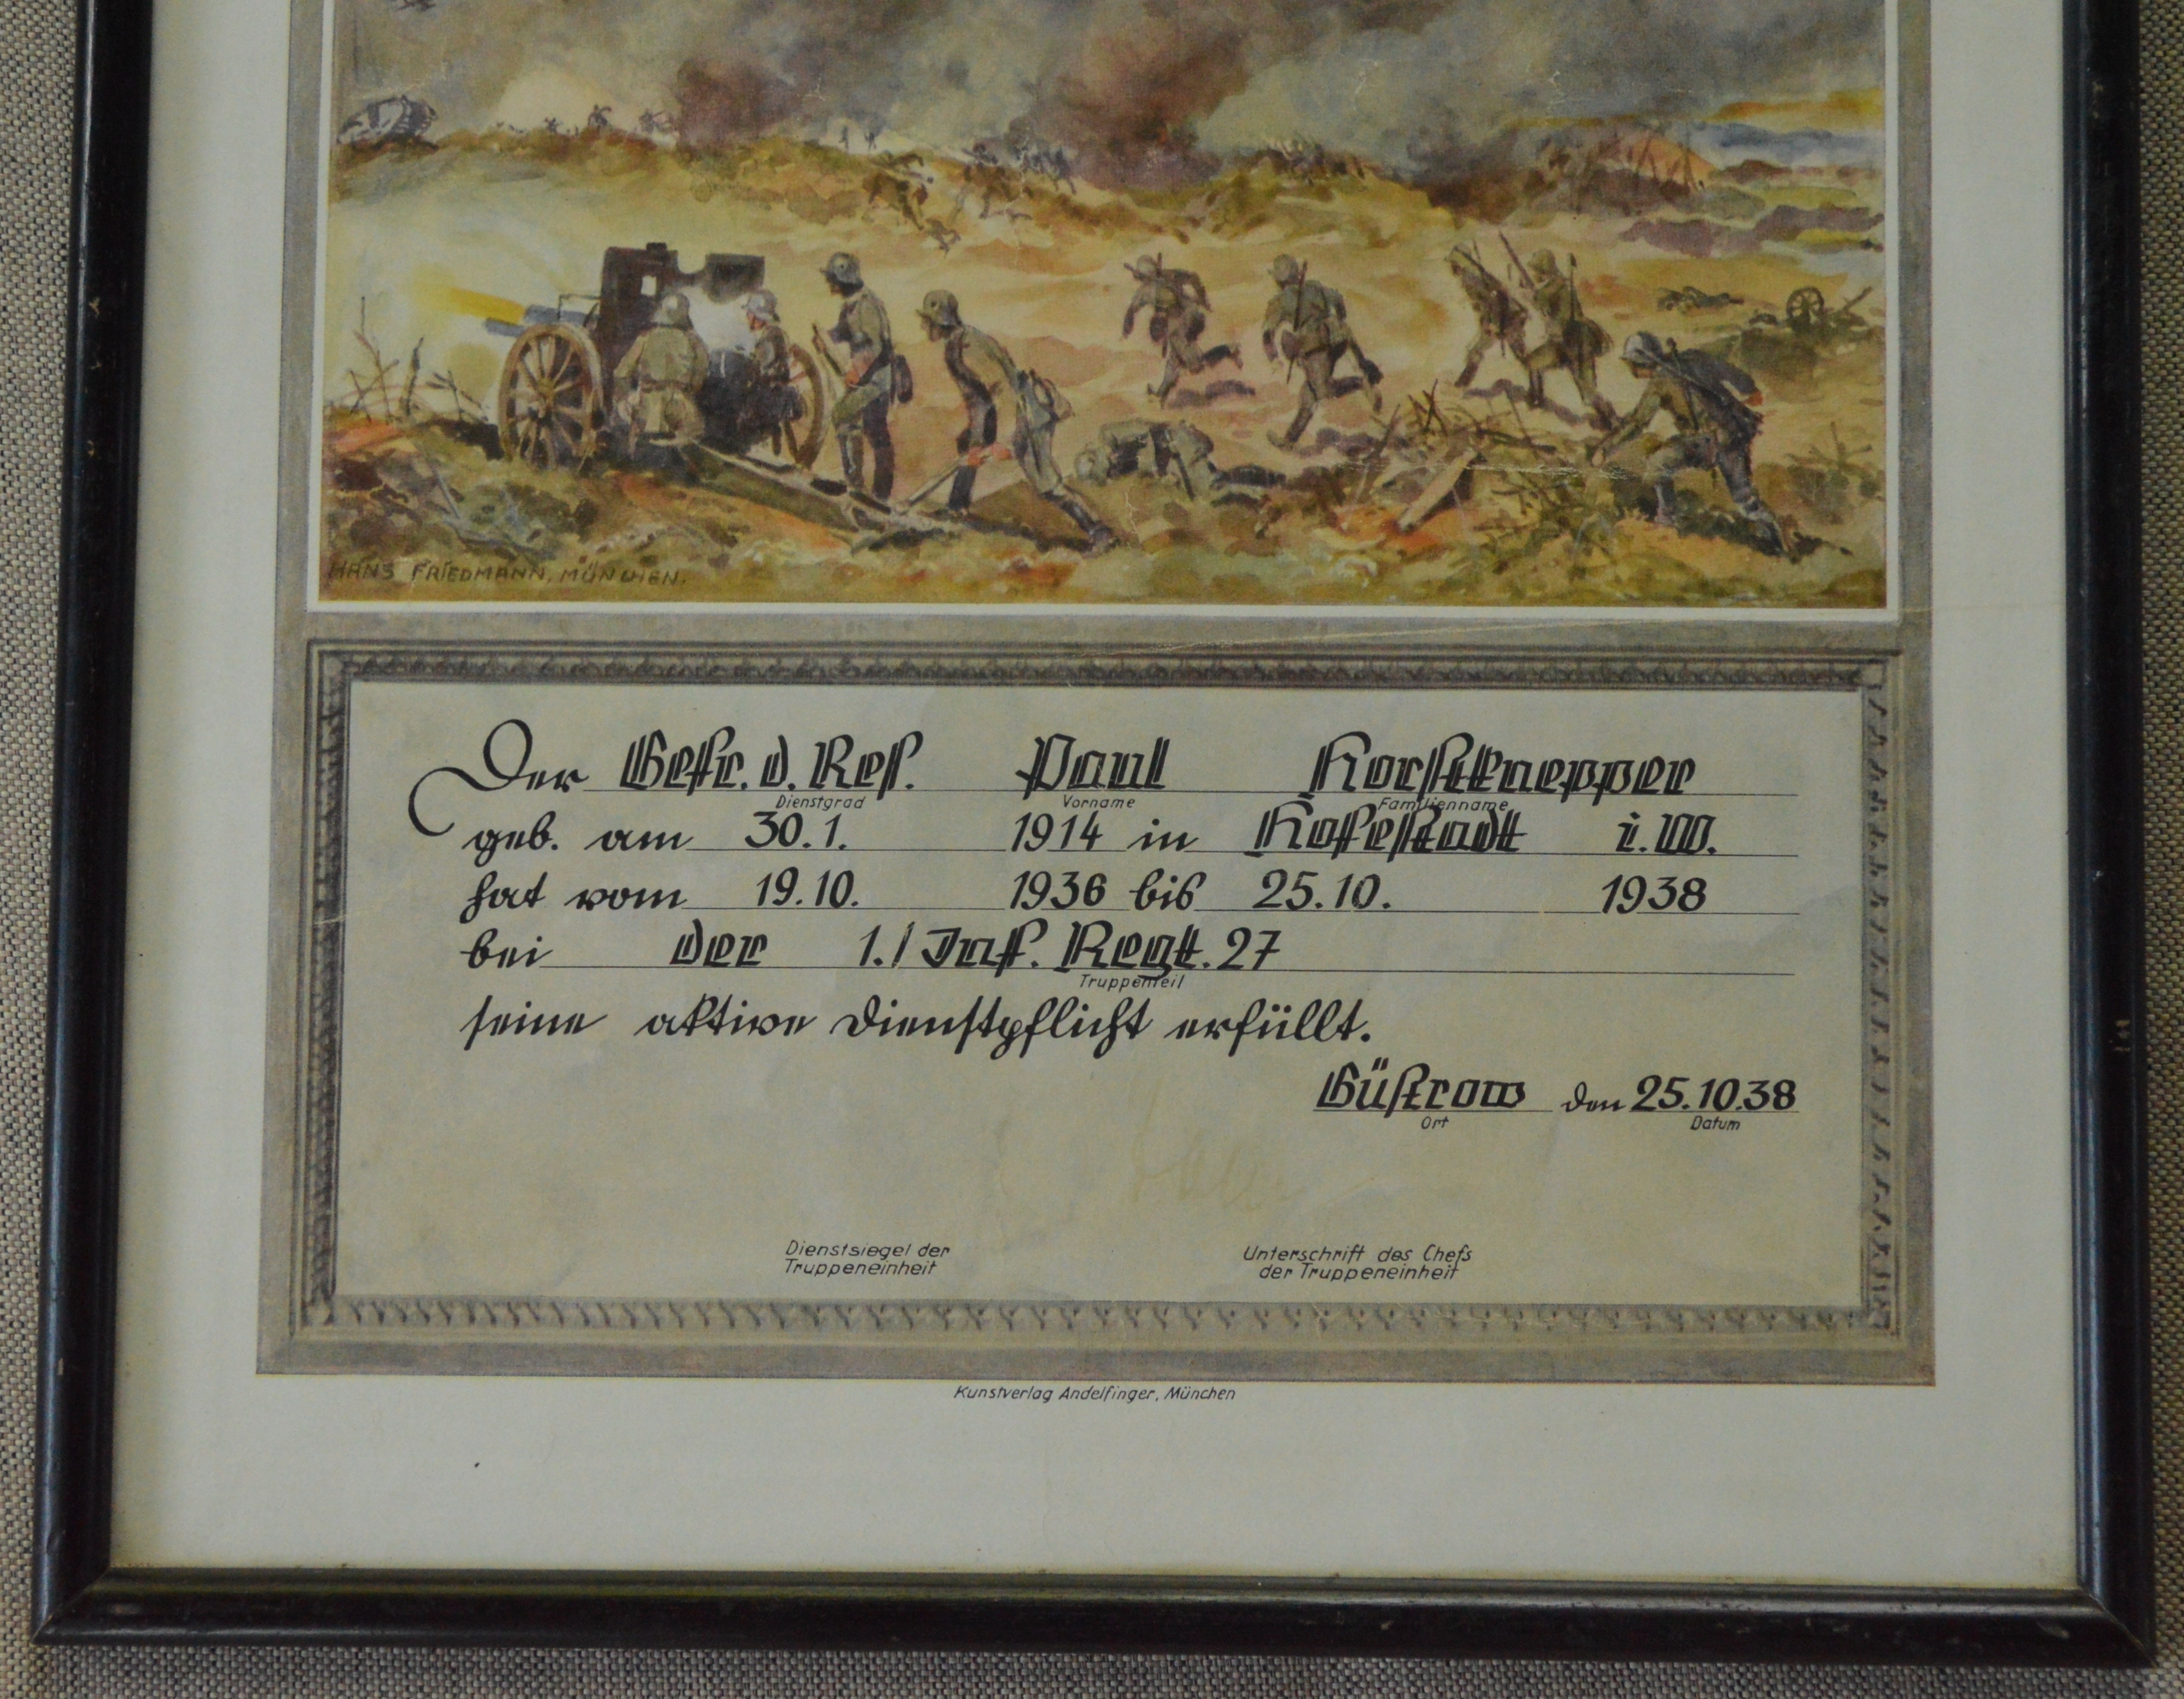 HANS FRIEDMANN, MÜNCHEN.
Der Gefr. d. Res. Paul Horstknepper
Dienstgrad Vorname Familienname
geb. am 30. 1. 1914 in Hofestadt i. W.
hat vom 19. 10. 1936 bis 25. 10. 1938
bei der 1. / Inf. Regt. 27
Truppenteil
seine aktive Dienstpflicht erfüllt.
Güstrow den 25. 10. 38
Ort Datum
Dienstsiegel der
Truppeneinheit
Unterschrift des Chefs
der Truppeneinheit
Kunstverlag Andelfinger, München